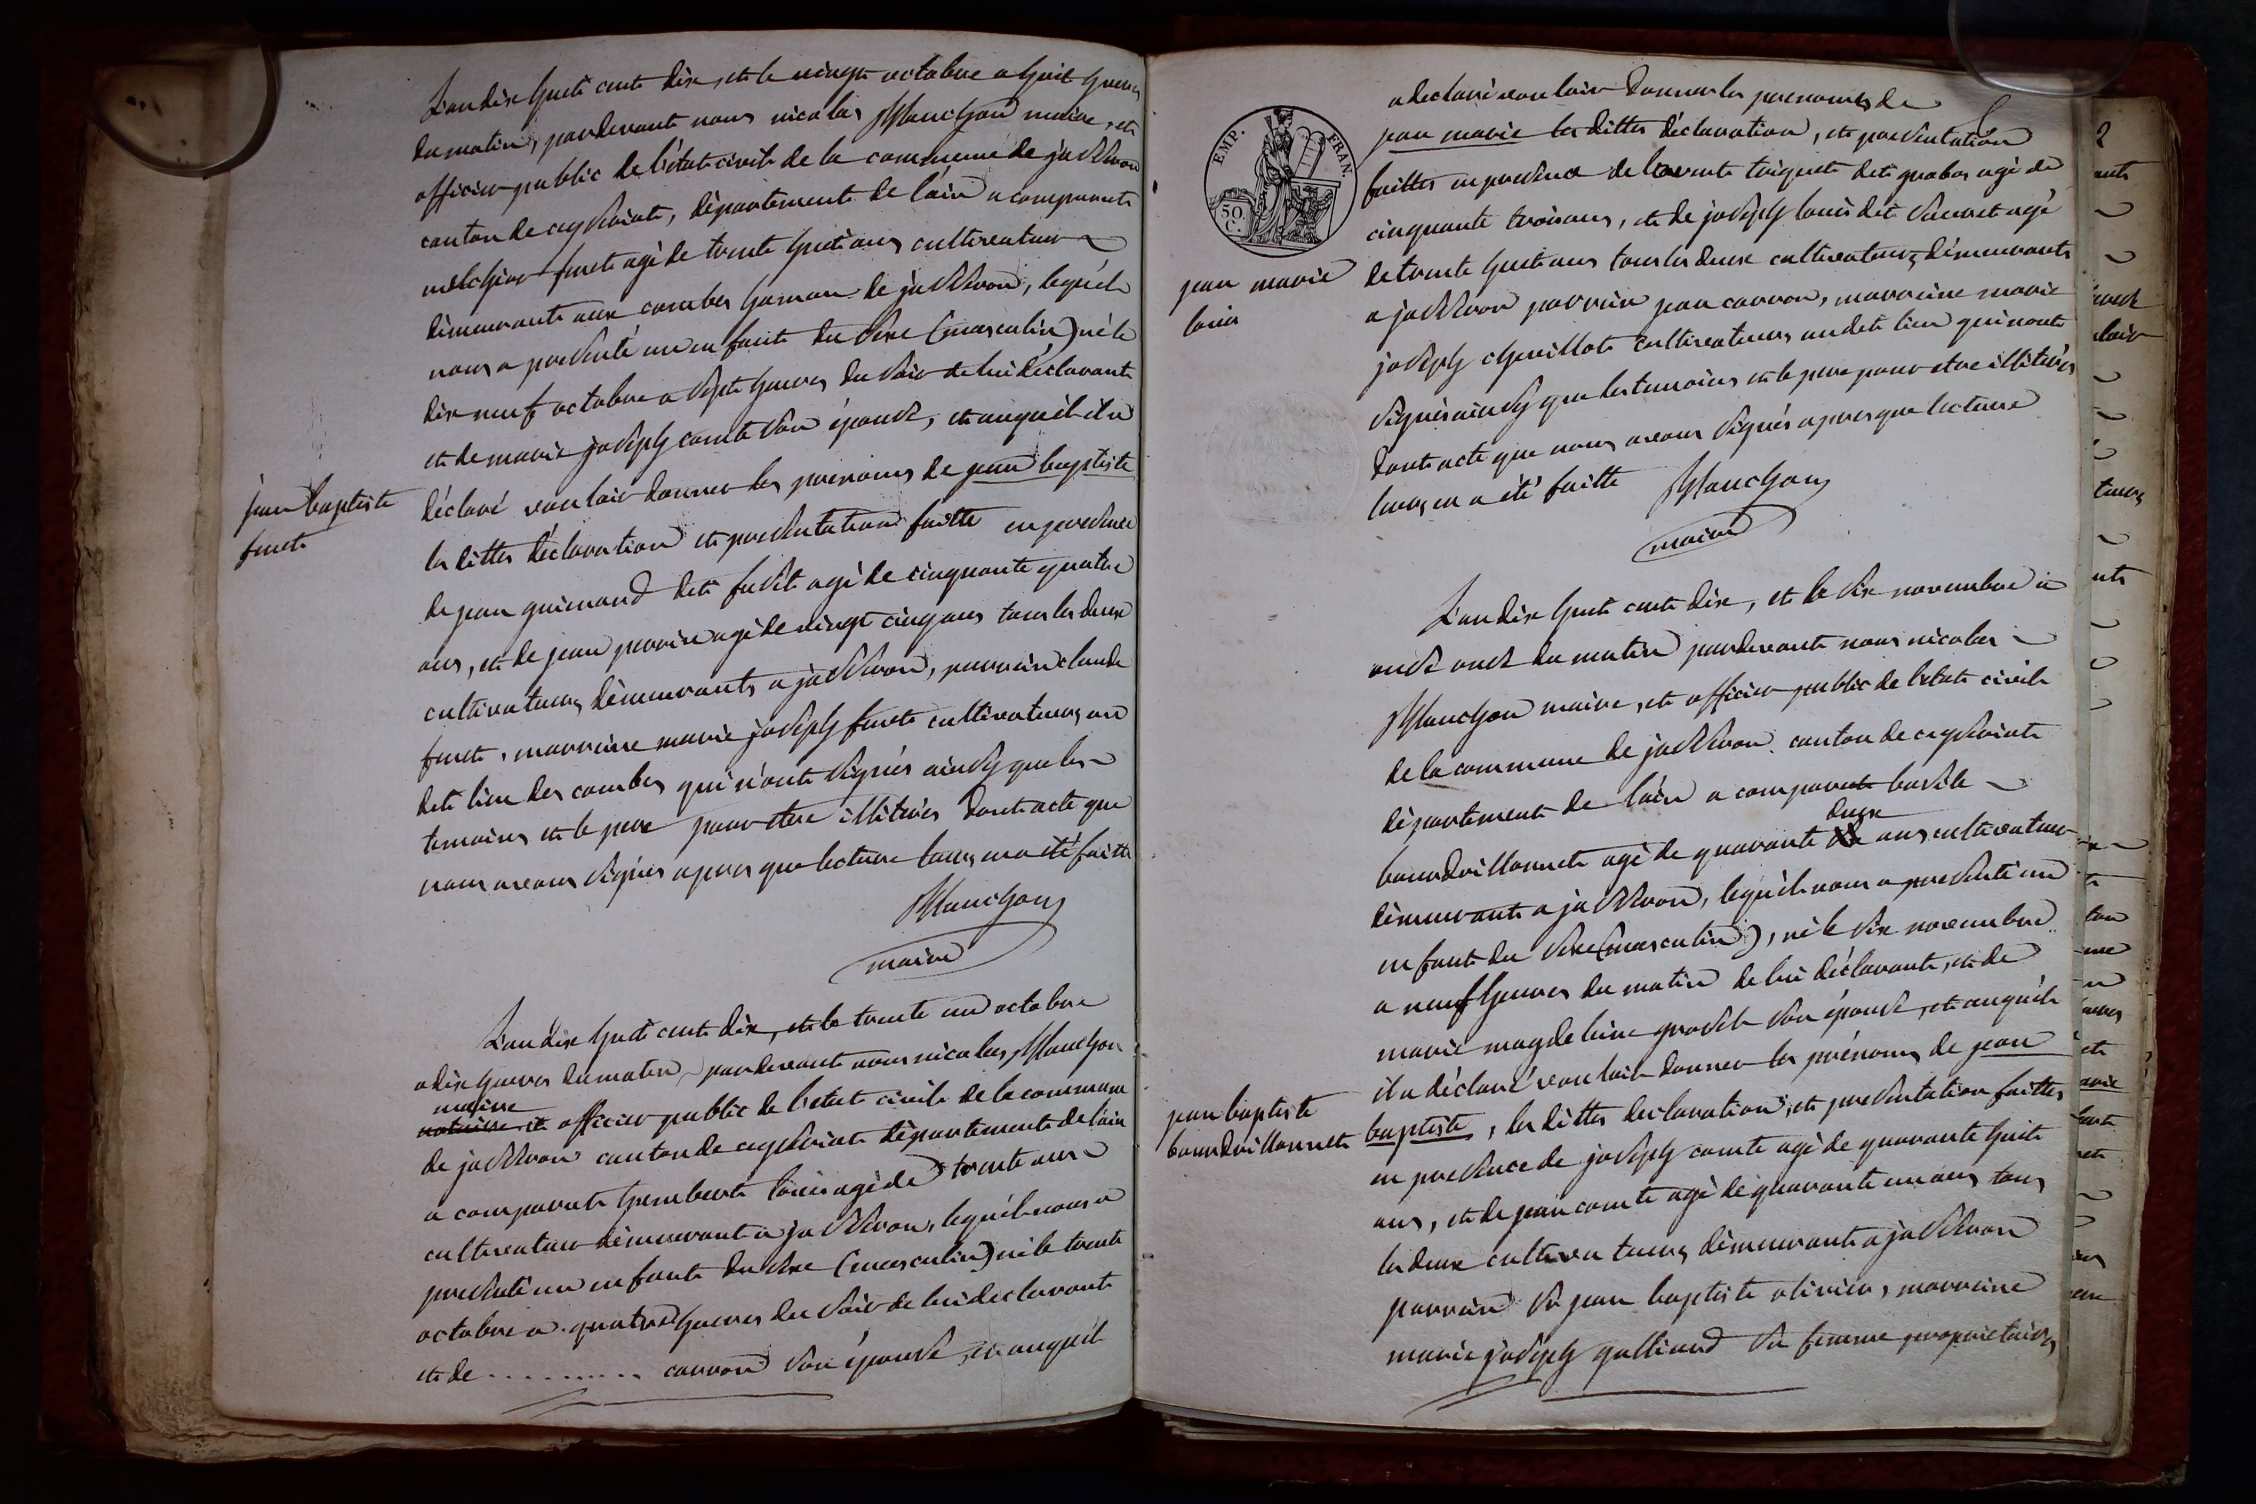 L'an dix huit cent dix, et le vingt octobre a huit heures
du matin, pardevant nous nicolas Planchon maire, et
officier public de l'état civil de la commune de jasseron
canton de ceyseriat, département de l'ain a comparut
melchior furet agé de trente huit ans cultivateur
démeurant aux combes hameau de jasseron, lequél
nous a presenté un enfant du sexe (masculin) né le
dix neuf octobre a sept heures du soir de lui déclarant
et de marie joseph comte son épouse, et auquél il a
déclaré vouloir donner les prenoms de jean baptiste
les dittes déclaration et presentation faitte en presence
de jean guinand dit agé de cinquante quatre
ans, et de jean perrin agé de vingt cinq ans tous les deux
cultivateurs démeurants a jasseron, parrein claude
furet, marreine marie joseph furet cultivateurs au
dit lieu des combes qui n'ont signés ainsy que les
temoins et le pere pour etre illiterés dont acte que
nous avons signés apres que lecture leurs en a été faitte
Planchon
maire
jean baptiste
furet
L'an dix huit cent dix, et le trente un octobre
a dix heures du matin pardevant nous nicolas Planchon
maire
notaire et officier public de l'état civile de la commune
de jasseron canton de ceyseriat département de l'ain
a comparut humbert loüis agé de trente ans
cultivateur démeurant a jasseron, lequél nous a
presenté un enfant du sexe (masculin) né le trente
octobre a quatre heures du soir de lui declarant
et de .......... carron son épouse, et auquél
a declaré vouloir donner les prenoms de
jean marie les dittes déclaration, et presentation
faittes en presence de laurent dit agé de
cinquante trois ans, et de joseph louis dit agé
de trente huit ans tous les deux cultivateurs démeurants
a jasseron parrein jean carron, marreine marie
joseph chevillot cultivateurs audit lieu qui n'ont
signés ainsy que les temoins et le pere pour etre illiterés
dont acte que nous avons signés apres que lecture
leurs en a été faitte Planchon
maire
EMP. FRAN.
50 C.
jean marie
loüis
L'an dix huit cent dix, et le six novembre a
onze du matin pardevant nous nicolas
Planchon maire, et officier public de l'etat civile
de la commune de jasseron canton de ceyseriat
département de l'ain a comparut basile
deux
bourdvillonnet agé de quarante ans cultivateur
démeurant a jasseron, lequél nous a presenté un
enfant du sexe (masculin), né le six novembre
a neuf heures du matin de lui déclarant, et de
marie magdeleine son épouse, et auquél
il a déclaré vouloir donner les prénoms de jean
baptiste, les dittes declaration, et presentation faittes
en presence de joseph comte agé de quarante huit
ans, et de jean comte agé de quarante un ans tous
les deux cultivateurs démeurant a jasseron
parrein sr jean baptiste olivier, marreine
marie joseph galliand sa femme proprietaires
jean baptiste
bourdvillonnet